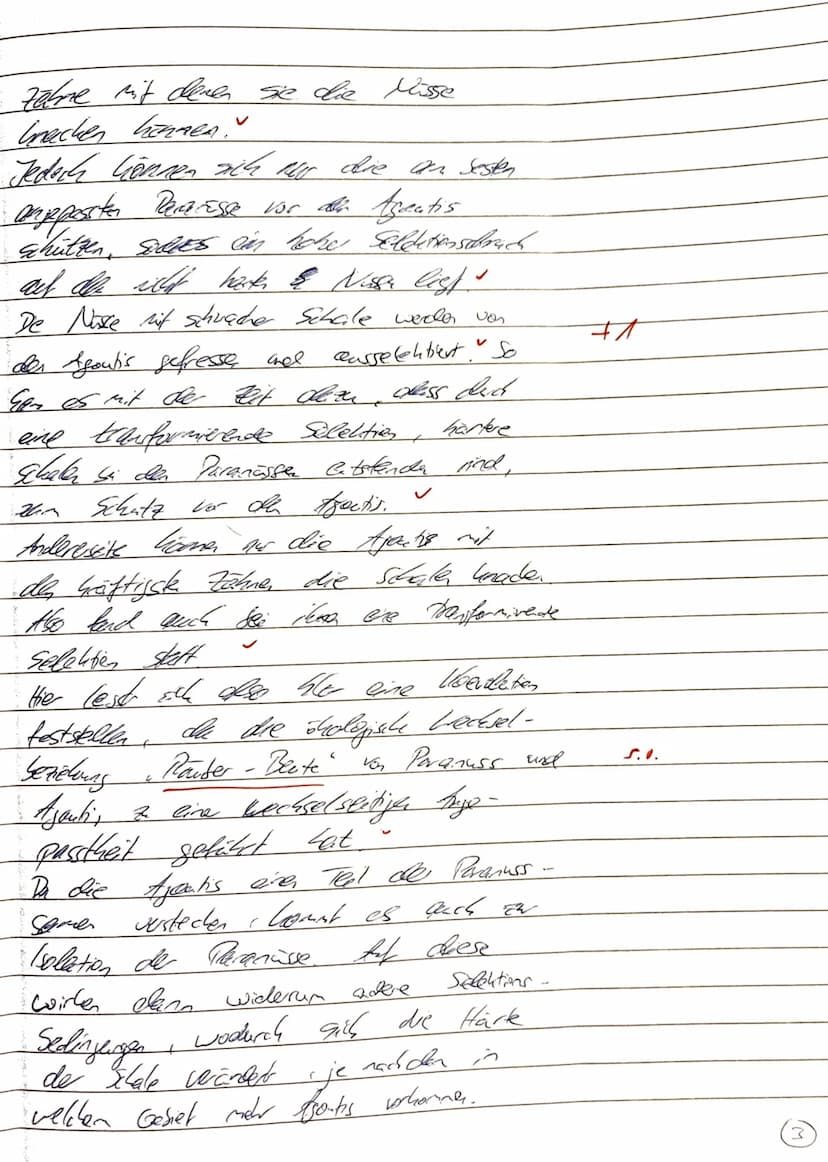 Zähne mit denen sie die Nüsse
knacken können.
Jedoch können sich nur die am besten
angepassten Paranüsse vor den Agoutis
schützen, sodass ein hoher Selektionsdruck
auf den nicht harten Nüssen liegt.
Die Nüsse mit schwacher Schale werden von
den Agoutis gefressen und ausselektiert. So
kam es mit der Zeit dazu, dass durch
eine transformierende Selektion, härtere
Schalen bei den Paranüssen entstanden sind,
zum Schutz vor den Agoutis.
+1
Andererseits können nur die Agoutis mit
den kräftigsten Zähnen die Schalen knacken.
Also fand auch bei ihnen eine transformierende
Selektion statt.
Hier lässt sich also eine Koevolution
feststellen, da die ökologische Wechsel-
beziehung „Räuber-Beute" von Paranuss und
s.o.
Agouti, zu einer wechselseitigen Ange-
passtheit geführt hat.
Da die Agoutis einen Teil der Paranuss-
samen verstecken, kommt es auch zur
Isolation der Paranüsse. Auf diese
wirken dann widerum andere Selektions-
bedingungen, wodurch sich die Härte
der Schale verändert, je nachdem in
welchem Gebiet mehr Agoutis vorkommen.
3